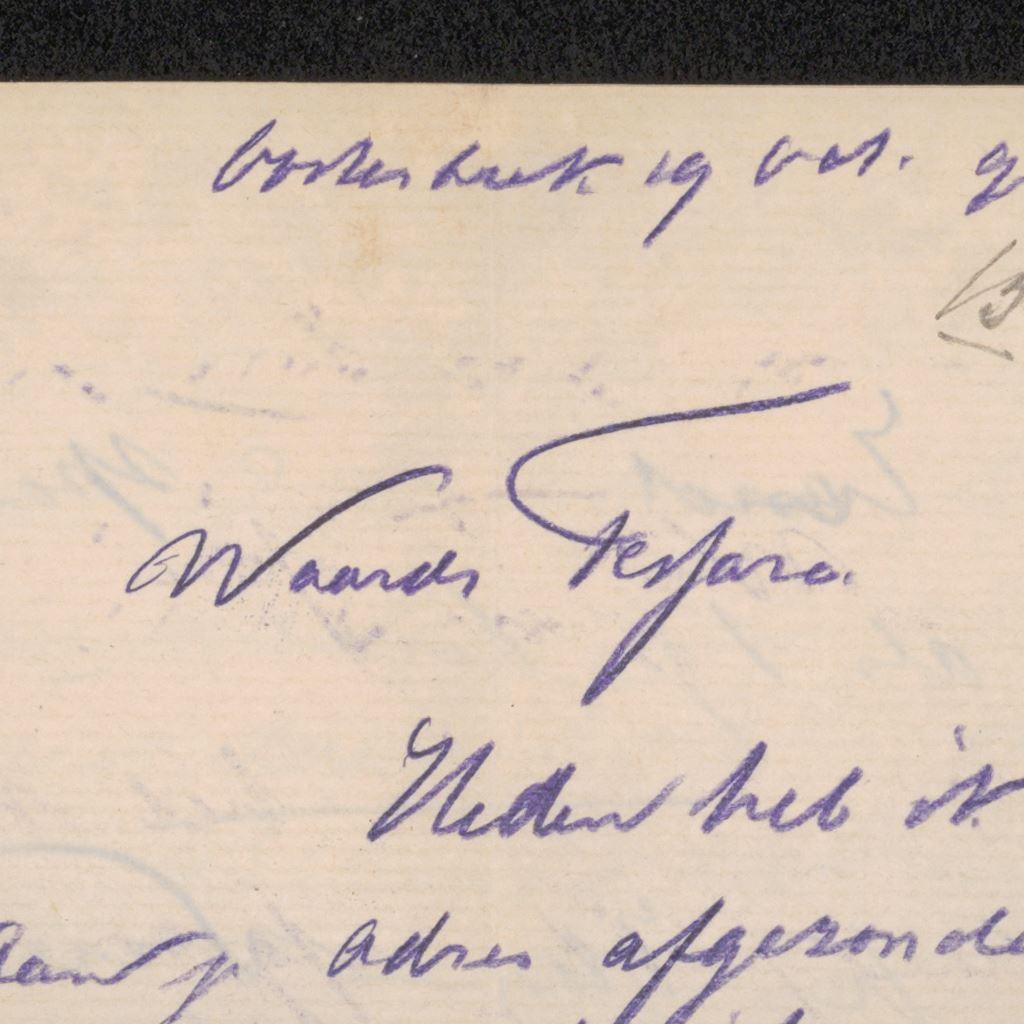 Oosterbeek 19 Oct. 9
Waarde Tessaro.
Heden heb ik
aan j adres afgezonde